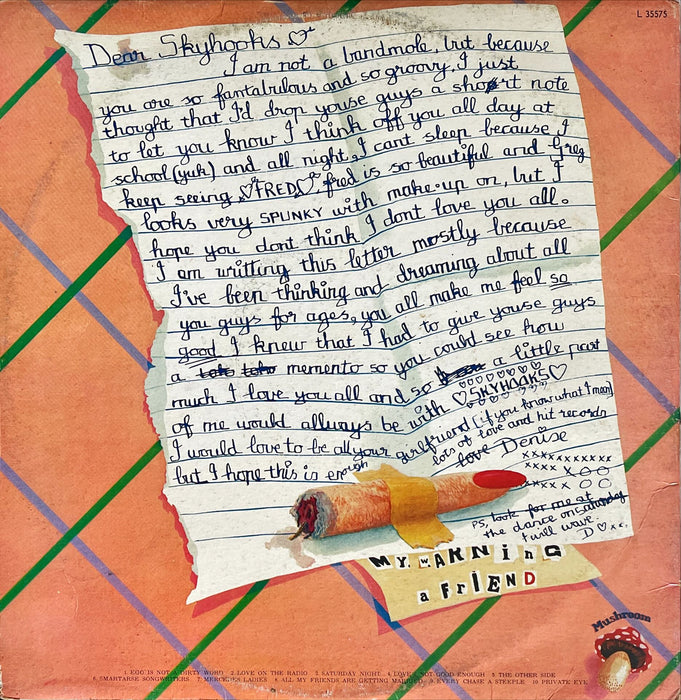 L 35575
Dear Skyhooks
I am not a bandmole, but because
you are so fantabulous and so groovy. I just
thought that I'd drop youse guys a short note
to let you know I think off you all day at
school (yuk) and all night. I cant sleep because I
keep seeing FRED fred is so beautiful and Greg
looks very SPUNKY with make-up on, but I
hope you dont think I dont love you all.
I am writting this letter mostly because
I've been thinking and dreaming about all
you guys for ages, you all make me feel so
good I knew that I had to give youse guys
a memento so you could see how
much I love you all and so a little part
of me would allways be with SKYHOOKS
I would love to be all your girlfriend (if you know what I mean)
but I hope this is enough lots of love and hit records
love Denise
xxxxxxxxxxx
xxxx x O O
xxxx x O O
PS, look for me at
the dance on saturday
I will wave.
D xx.
MY. WARNiNG
a FRIEND
Mushroom
1 EGO IS NOT A DIRTY WORD 2 LOVE ON THE RADIO 3 SATURDAY NIGHT 4 LOVE'S NOT GOOD ENOUGH 5 THE OTHER SIDE
6 SMARTARSE SONGWRITERS 7 MERCEDES LADIES 8 ALL MY FRIENDS ARE GETTING MARRIED 9 EVERY CHASE A STEEPLE 10 PRIVATE EYE